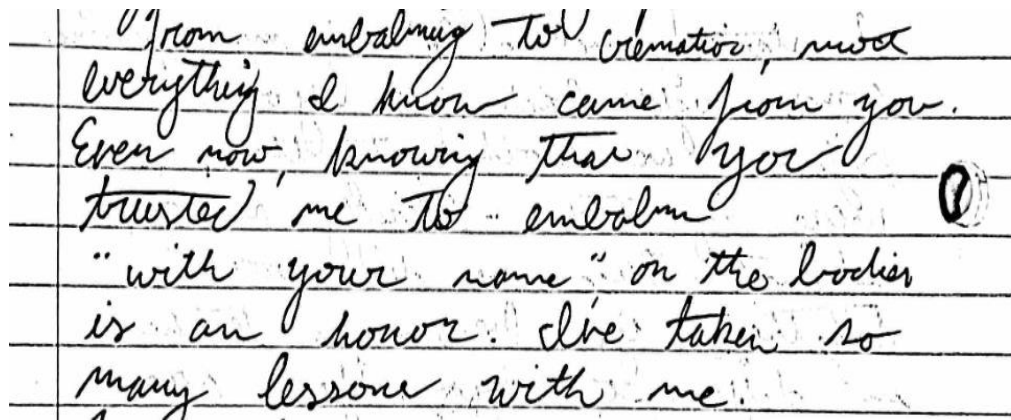 from embalming to cremation, most
everything I know came from you.
Even now, knowing that you
trusted me to embalm
"with your name" on the bodies
is an honor. I've taken so
many lessons with me.